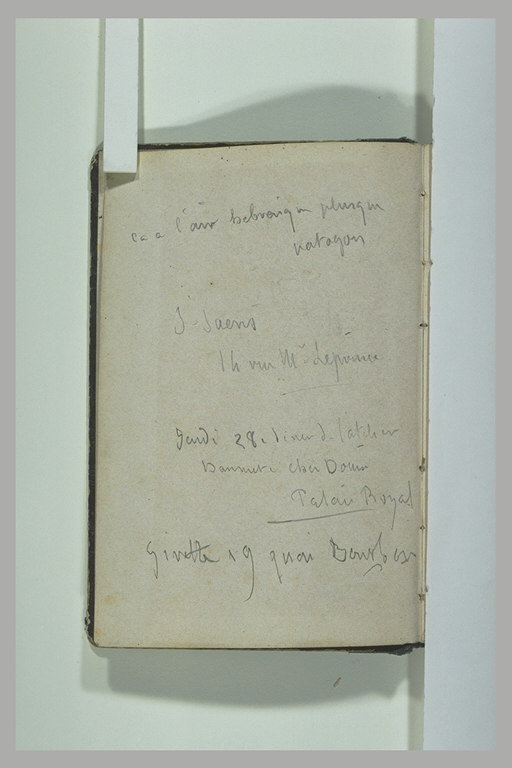 ca a l'air hebraique plusque
patagon
S. Saens
14 rue Mr. Leprince
Jeudi 28. diner de l'atelier
Bonnat chez Douix
Palais Royal
Girette 19 quai Bourbon